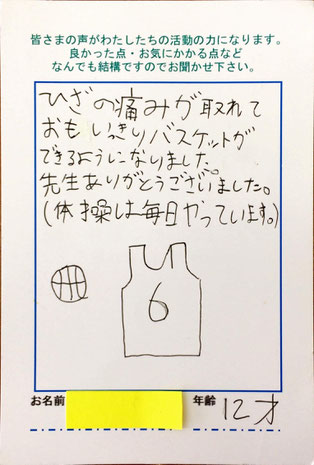 皆さまの声がわたしたちの活動の力になります。
良かった点・お気にかかる点など
なんでも結構ですのでお聞かせ下さい。
ひざの痛みが取れて
おもいっきりバスケットが
できるようになりました。
先生ありがとうございました。
(体操は毎日やっています。)
6
お名前 年齢 12才